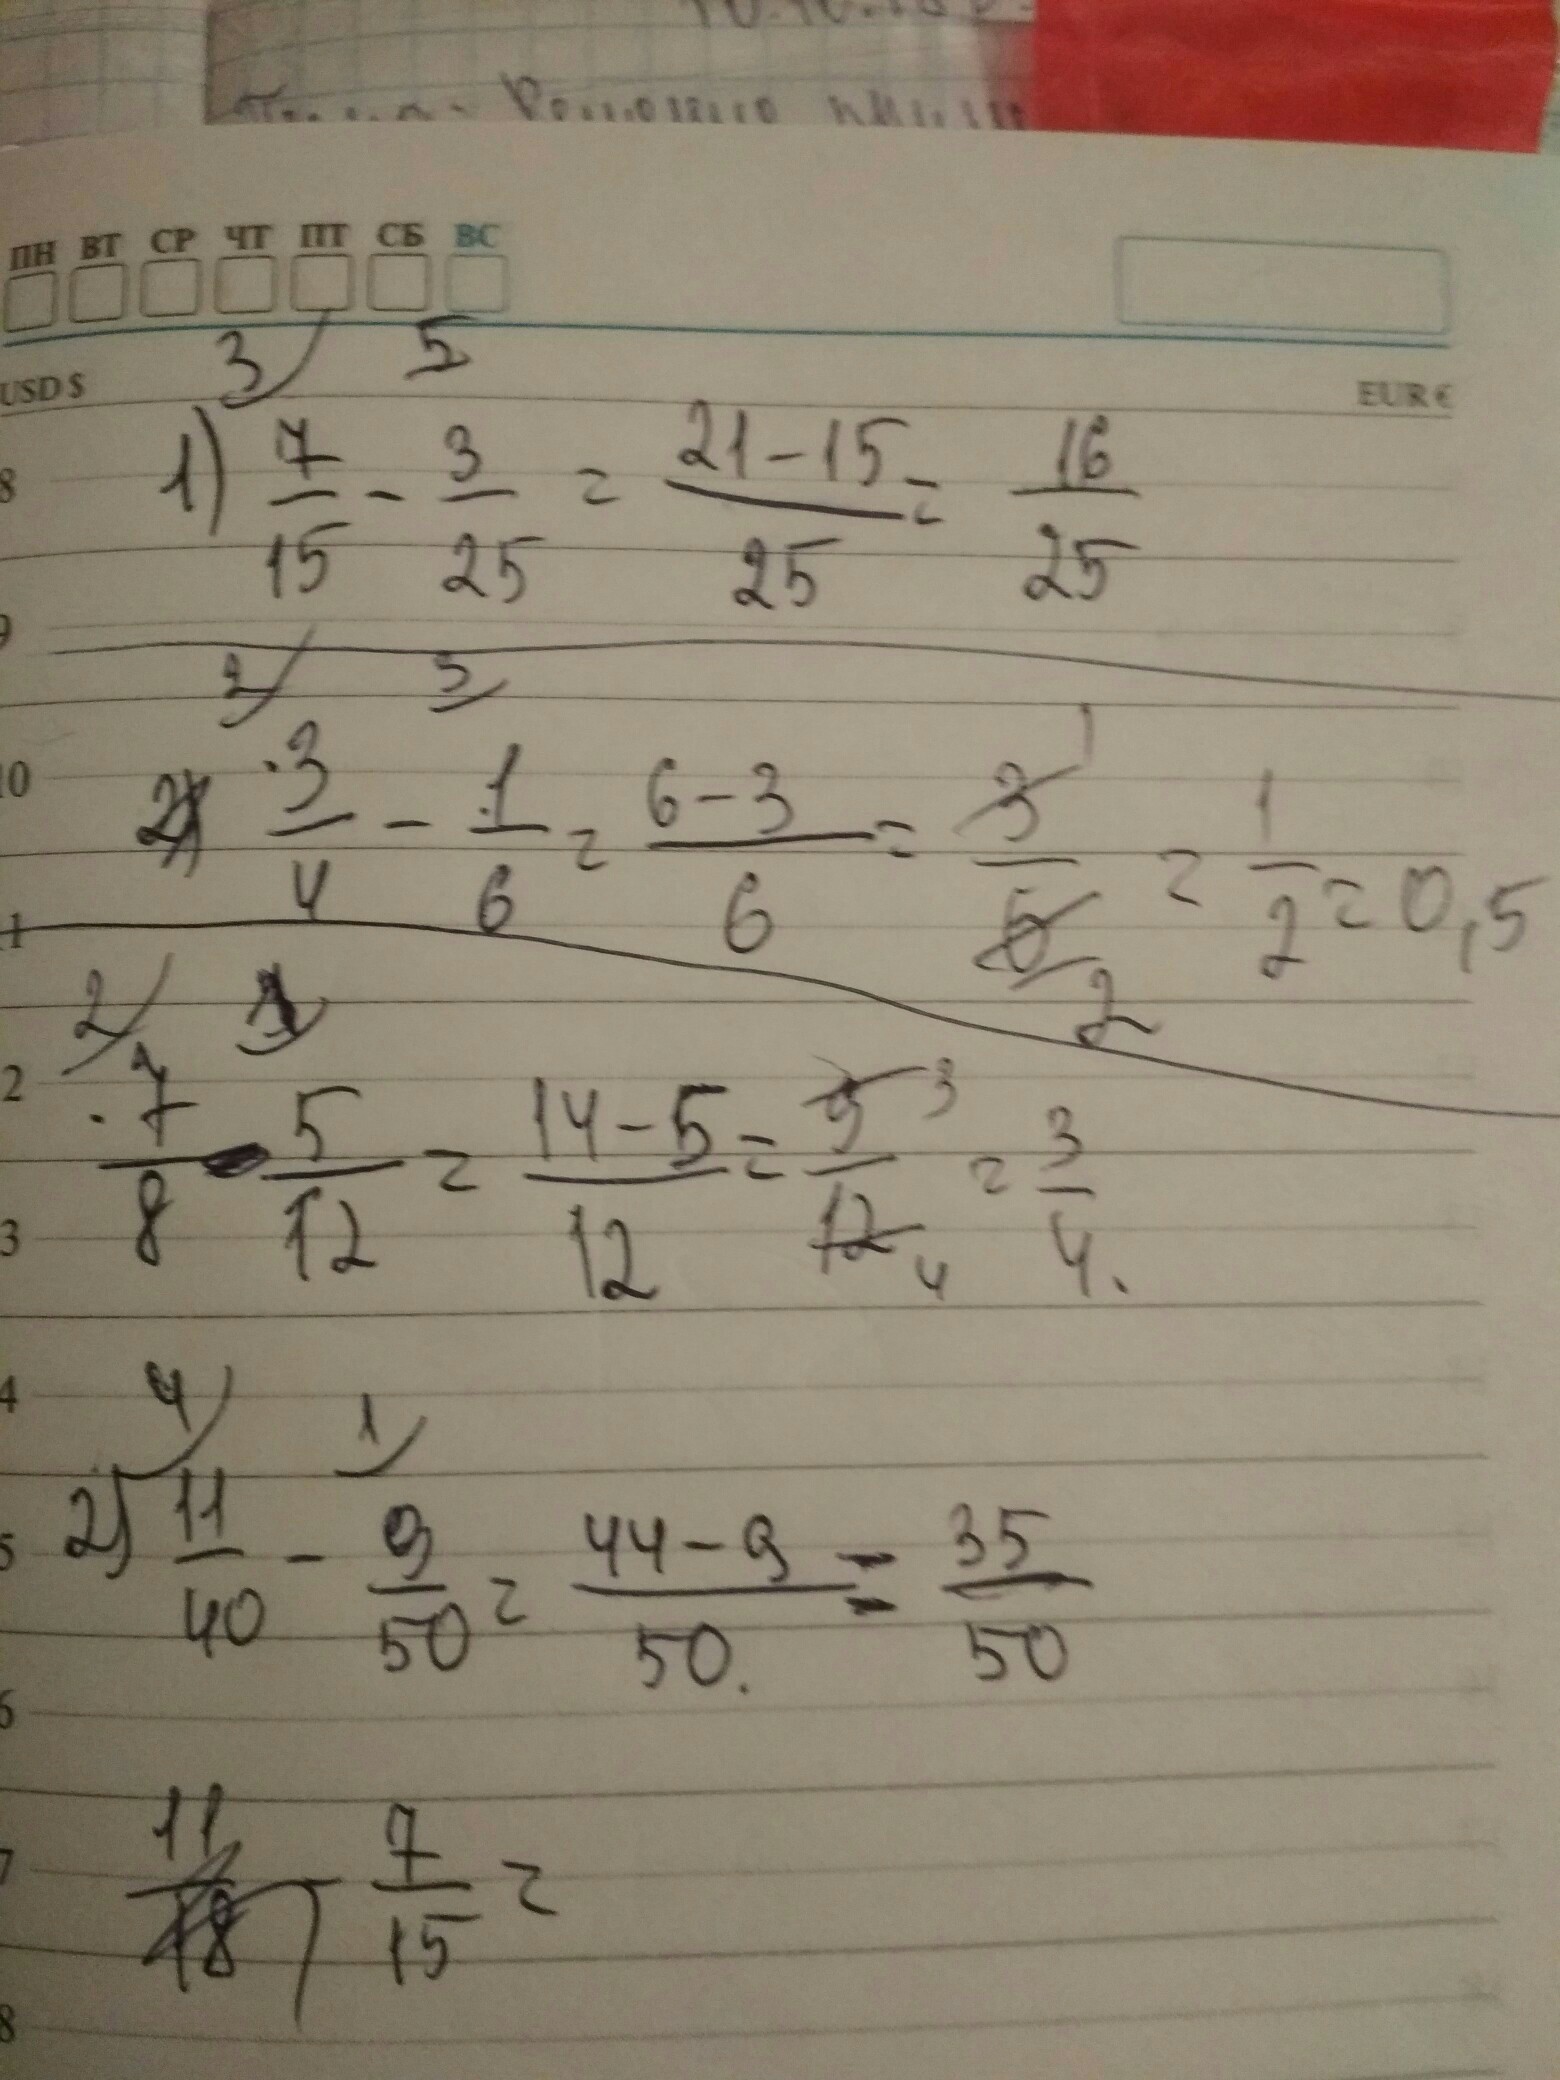 ПН ВТ СР ЧТ ПТ СБ ВС
USD $ EUR €
3 5
8 1) 7/15 - 3/25 = 21-15/25 = 16/25
9
2 3
10 2) ·3/4 - 1/6 = 6-3/6 = 3/6 1 2 = 1/2 = 0,5
1
2
2 ·7/8 - 5/12 = 14-5/12 = 9/12 3 4 = 3/4.
3
4 4 1
5 2) 11/40 - 9/50 = 44-9/50. = 35/50
6
7 11/18 - 7/15 =
8